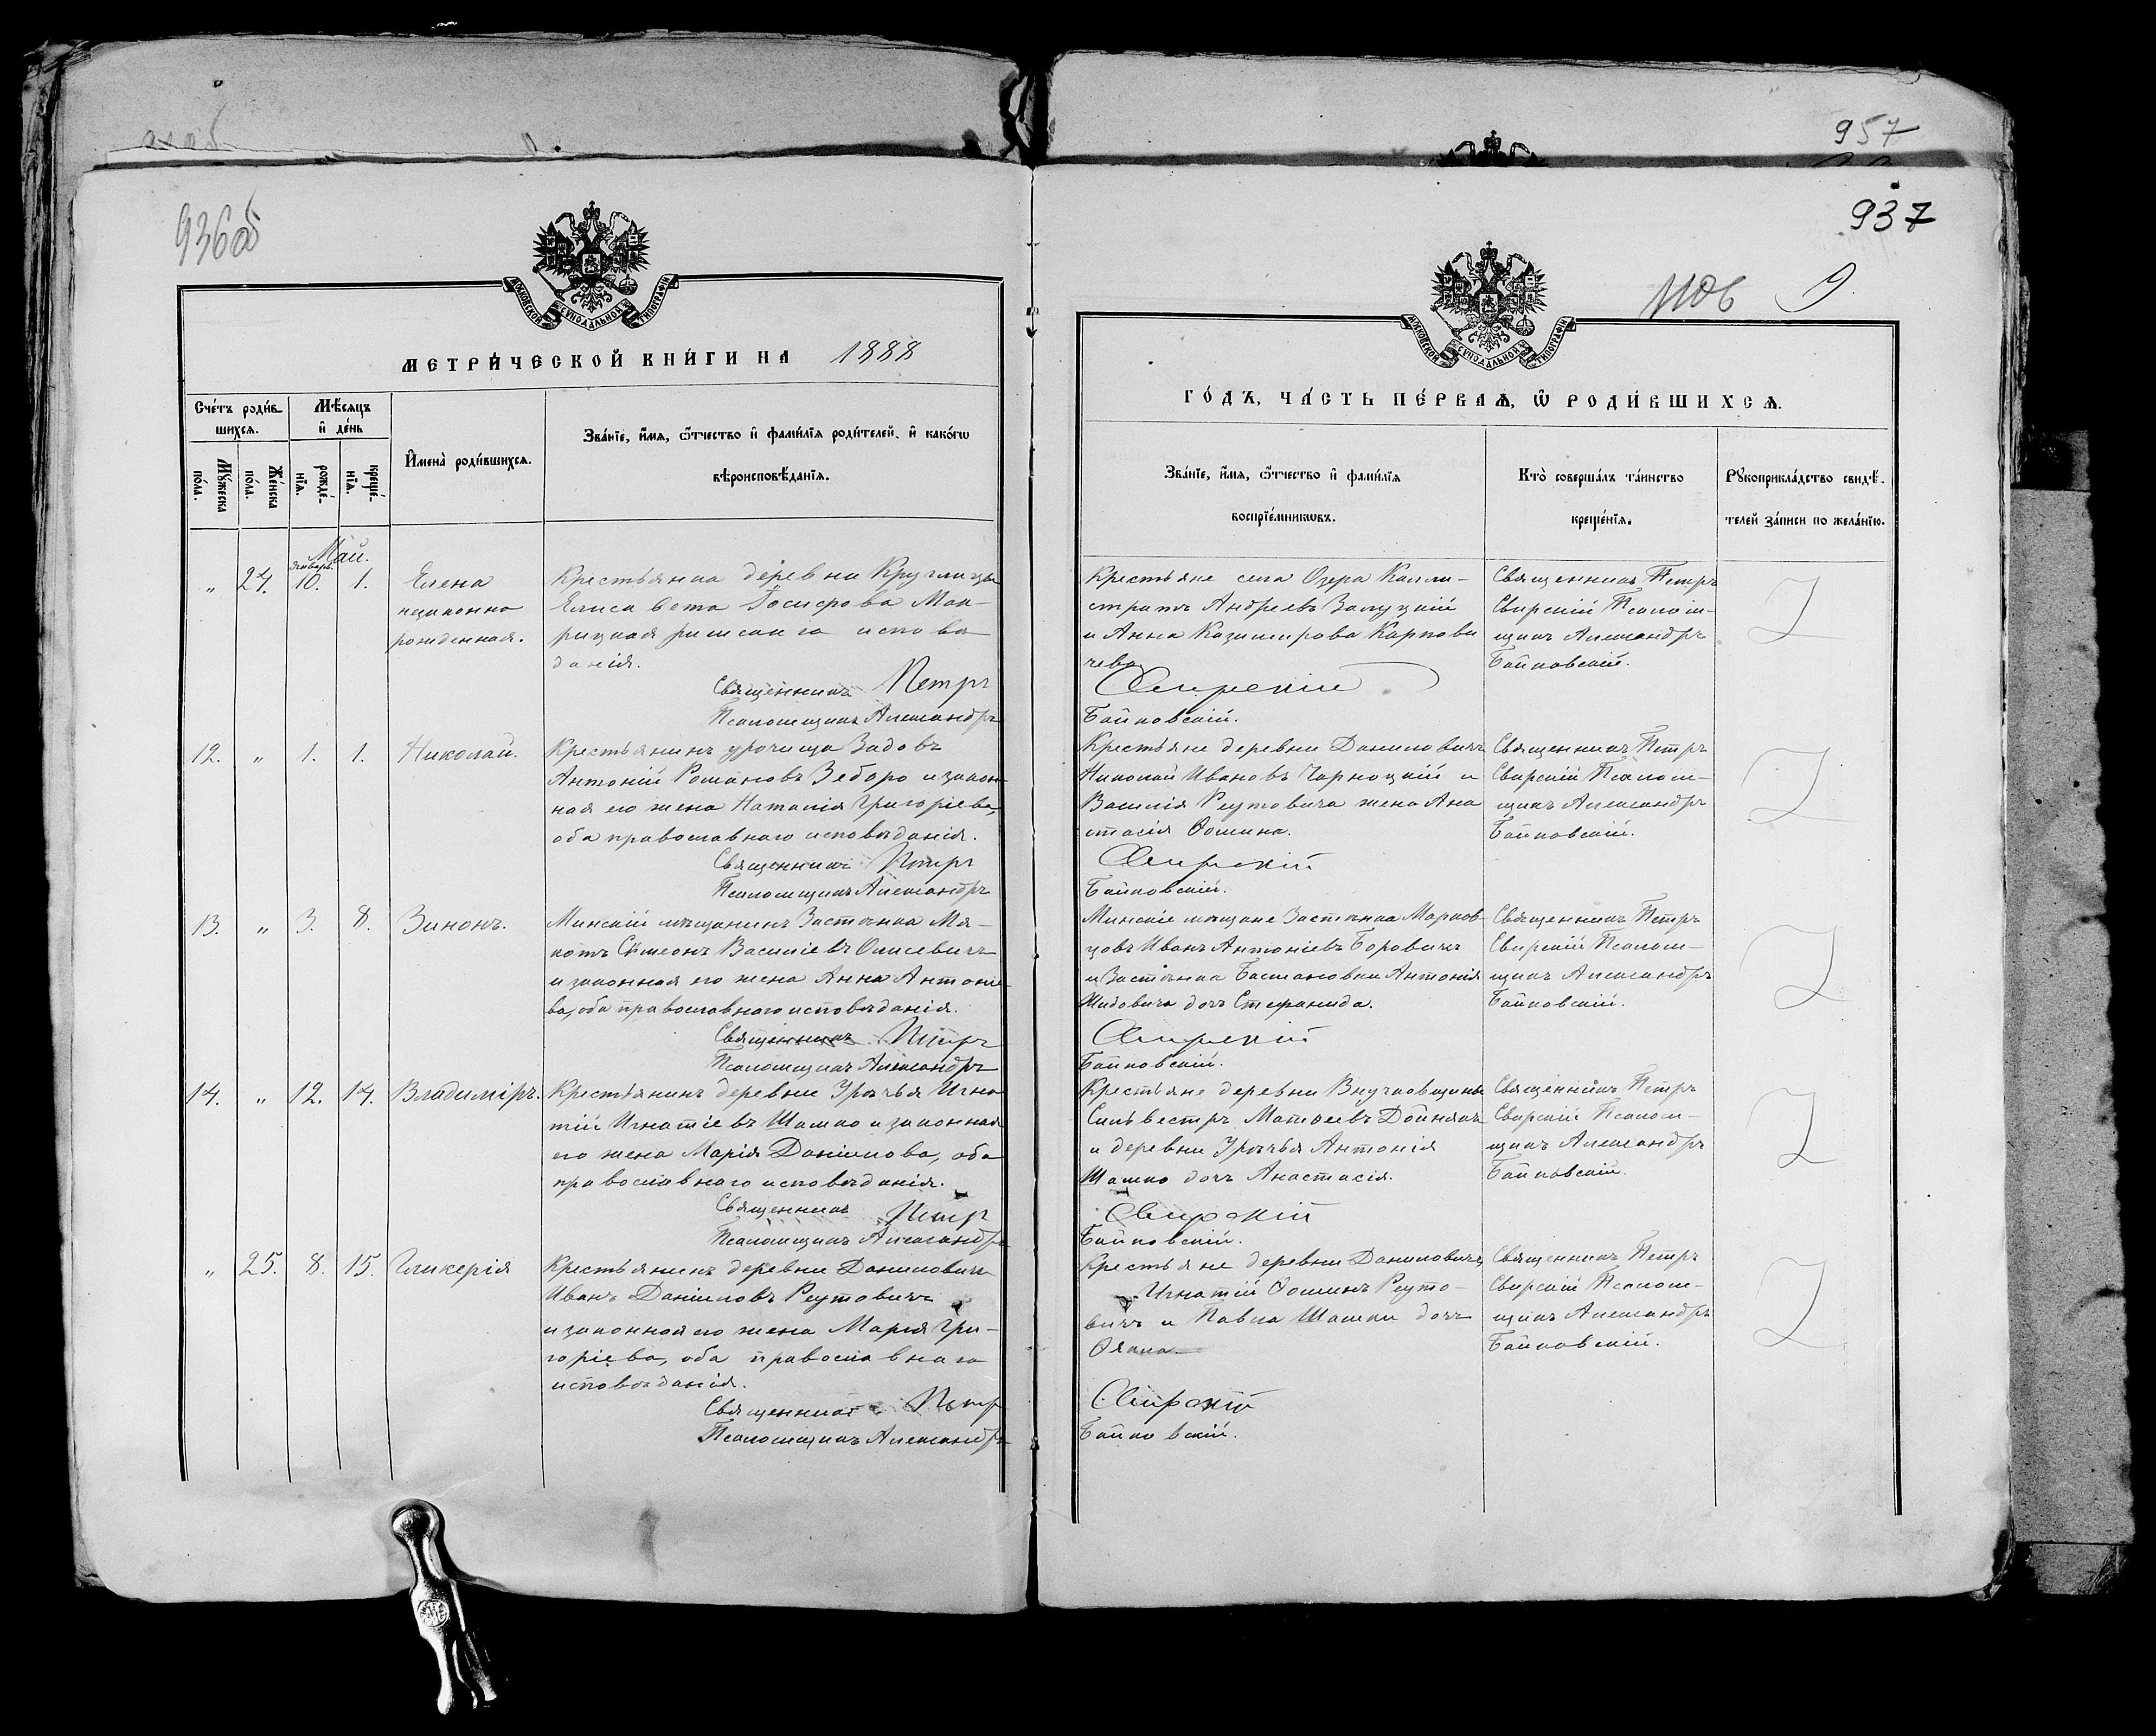 957
936об
937
1106 9.
МОСКОВСКОЙ СѴНОДАЛЬНОЙ ТИПОГРАФІИ
МОСКОВСКОЙ СѴНОДАЛЬНОЙ ТИПОГРАФІИ
МЕТРИ́ЧЕСКОЙ КНИ́ГИ НА 1888
Сче́тъ роди́в-
шихсѧ.
Мѣ́сѧцъ
и҆ де́нь
Мꙋ́жеска
по́ла.
Же́нска
по́ла.
рожде́-
нїѧ.
креще́-
нїѧ.
И҆мена̀ роди́вшихсѧ.
Зва́нїе, и҆́мѧ, ѻ҆́тчество и҆ фами́лїѧ роди́телей, и҆ како́гѡ
вѣроисповѣ́данїѧ.
Май.
Январь.
„ 24. 10. 1.
Елена
незаконно
рожденная.
Крестьянка деревни Кругlицы
Елисавета Іосифова Мак-
рицкая римскаго исповѣ
данія.
Священникъ Петръ
Псаломщикъ Александръ
12. „ 1. 1. Николай.
Крестьянинъ урочища Задовъ
Антоній Романовъ Зеборо и закон
ная его жена Наталія Григоріева,
оба православнаго исповѣданія.
Священникъ Петръ
Псаломщикъ Александръ
13. „ 3. 8. Зинонъ.
Минскій мѣщанинъ Застѣнка Мя-
котъ Сѵмеонъ Василіевъ Олисевичъ
и законная его жена Анна Антоніе-
ва, оба православнаго исповѣданія.
Священникъ Петръ
Псаломщикъ Александръ
14. „ 12. 14. Владиміръ.
Крестьянинъ деревни Урѣчья Игна
тій Игнатіевъ Шашко и законная
его жена Марія Даніилова, оба
православнаго исповѣданія.
Священникъ Петръ
Псаломщикъ Александръ
„ 25. 8. 15. Гликерія
Крестьянинъ деревни Даниловичъ
Иванъ Даніиловъ Реутовичъ
и законная его жена Марія Гри-
горіева, оба православнаго
исповѣданія.
Священникъ Петръ
Псаломщикъ Александръ
ГО́ДЪ, ЧА́СТЬ ПЕ́РВАѦ, Ѡ҆ РОДИ́ВШИХСѦ.
Зва́нїе, и҆́мѧ, ѻ҆́тчество и҆ фами́лїѧ
воспрїе́мникѡвъ.
Кто̀ соверша́лъ та́инство
креще́нїѧ.
Рꙋкоприкла́дство свидѣ́-
телей за́писи по жела́нїю.
Крестьяне села Озера Калли-
стратъ Андреевъ Залуцкій
и Анна Казимирова Карпови
чева.
Свирскій
Байковскій.
Священникъ Петръ
Свирскій Псалом-
щикъ Александръ
Байковскій.
Крестьяне деревни Даниловичъ
Николай Ивановъ Чарноцкій и
Василія Реутовича жена Ана
стасія Ѳомина.
Свирскій
Байковскій.
Священникъ Петръ
Свирскій Псалом-
щикъ Александръ
Байковскій.
Минскіе мѣщане Застѣнка Марков-
цовъ Иванъ Антоніевъ Боровичъ
и Застѣнка Антонія
дочъ Стефанида.
Свирскій
Байковскій.
Священникъ Петръ
Свирскій Псалом-
щикъ Александръ
Байковскій.
Крестьяне деревни Внучковщины
Сильвестръ Матѳеевъ Дойнякъ
и деревни Урѣчья Антонія
Шашко дочъ Анастасія.
Свирскій
Байковскій.
Священникъ Петръ
Свирскій Псалом-
щикъ Александръ
Байковскій.
Крестьяне деревни Даниловичъ
Игнатій Ѳоминъ Реуто-
вичъ и Павла Шашки дочъ
Ѳекла.
Свирскій
Байковскій.
Священникъ Петръ
Свирскій Псалом-
щикъ Александръ
Байковскій.